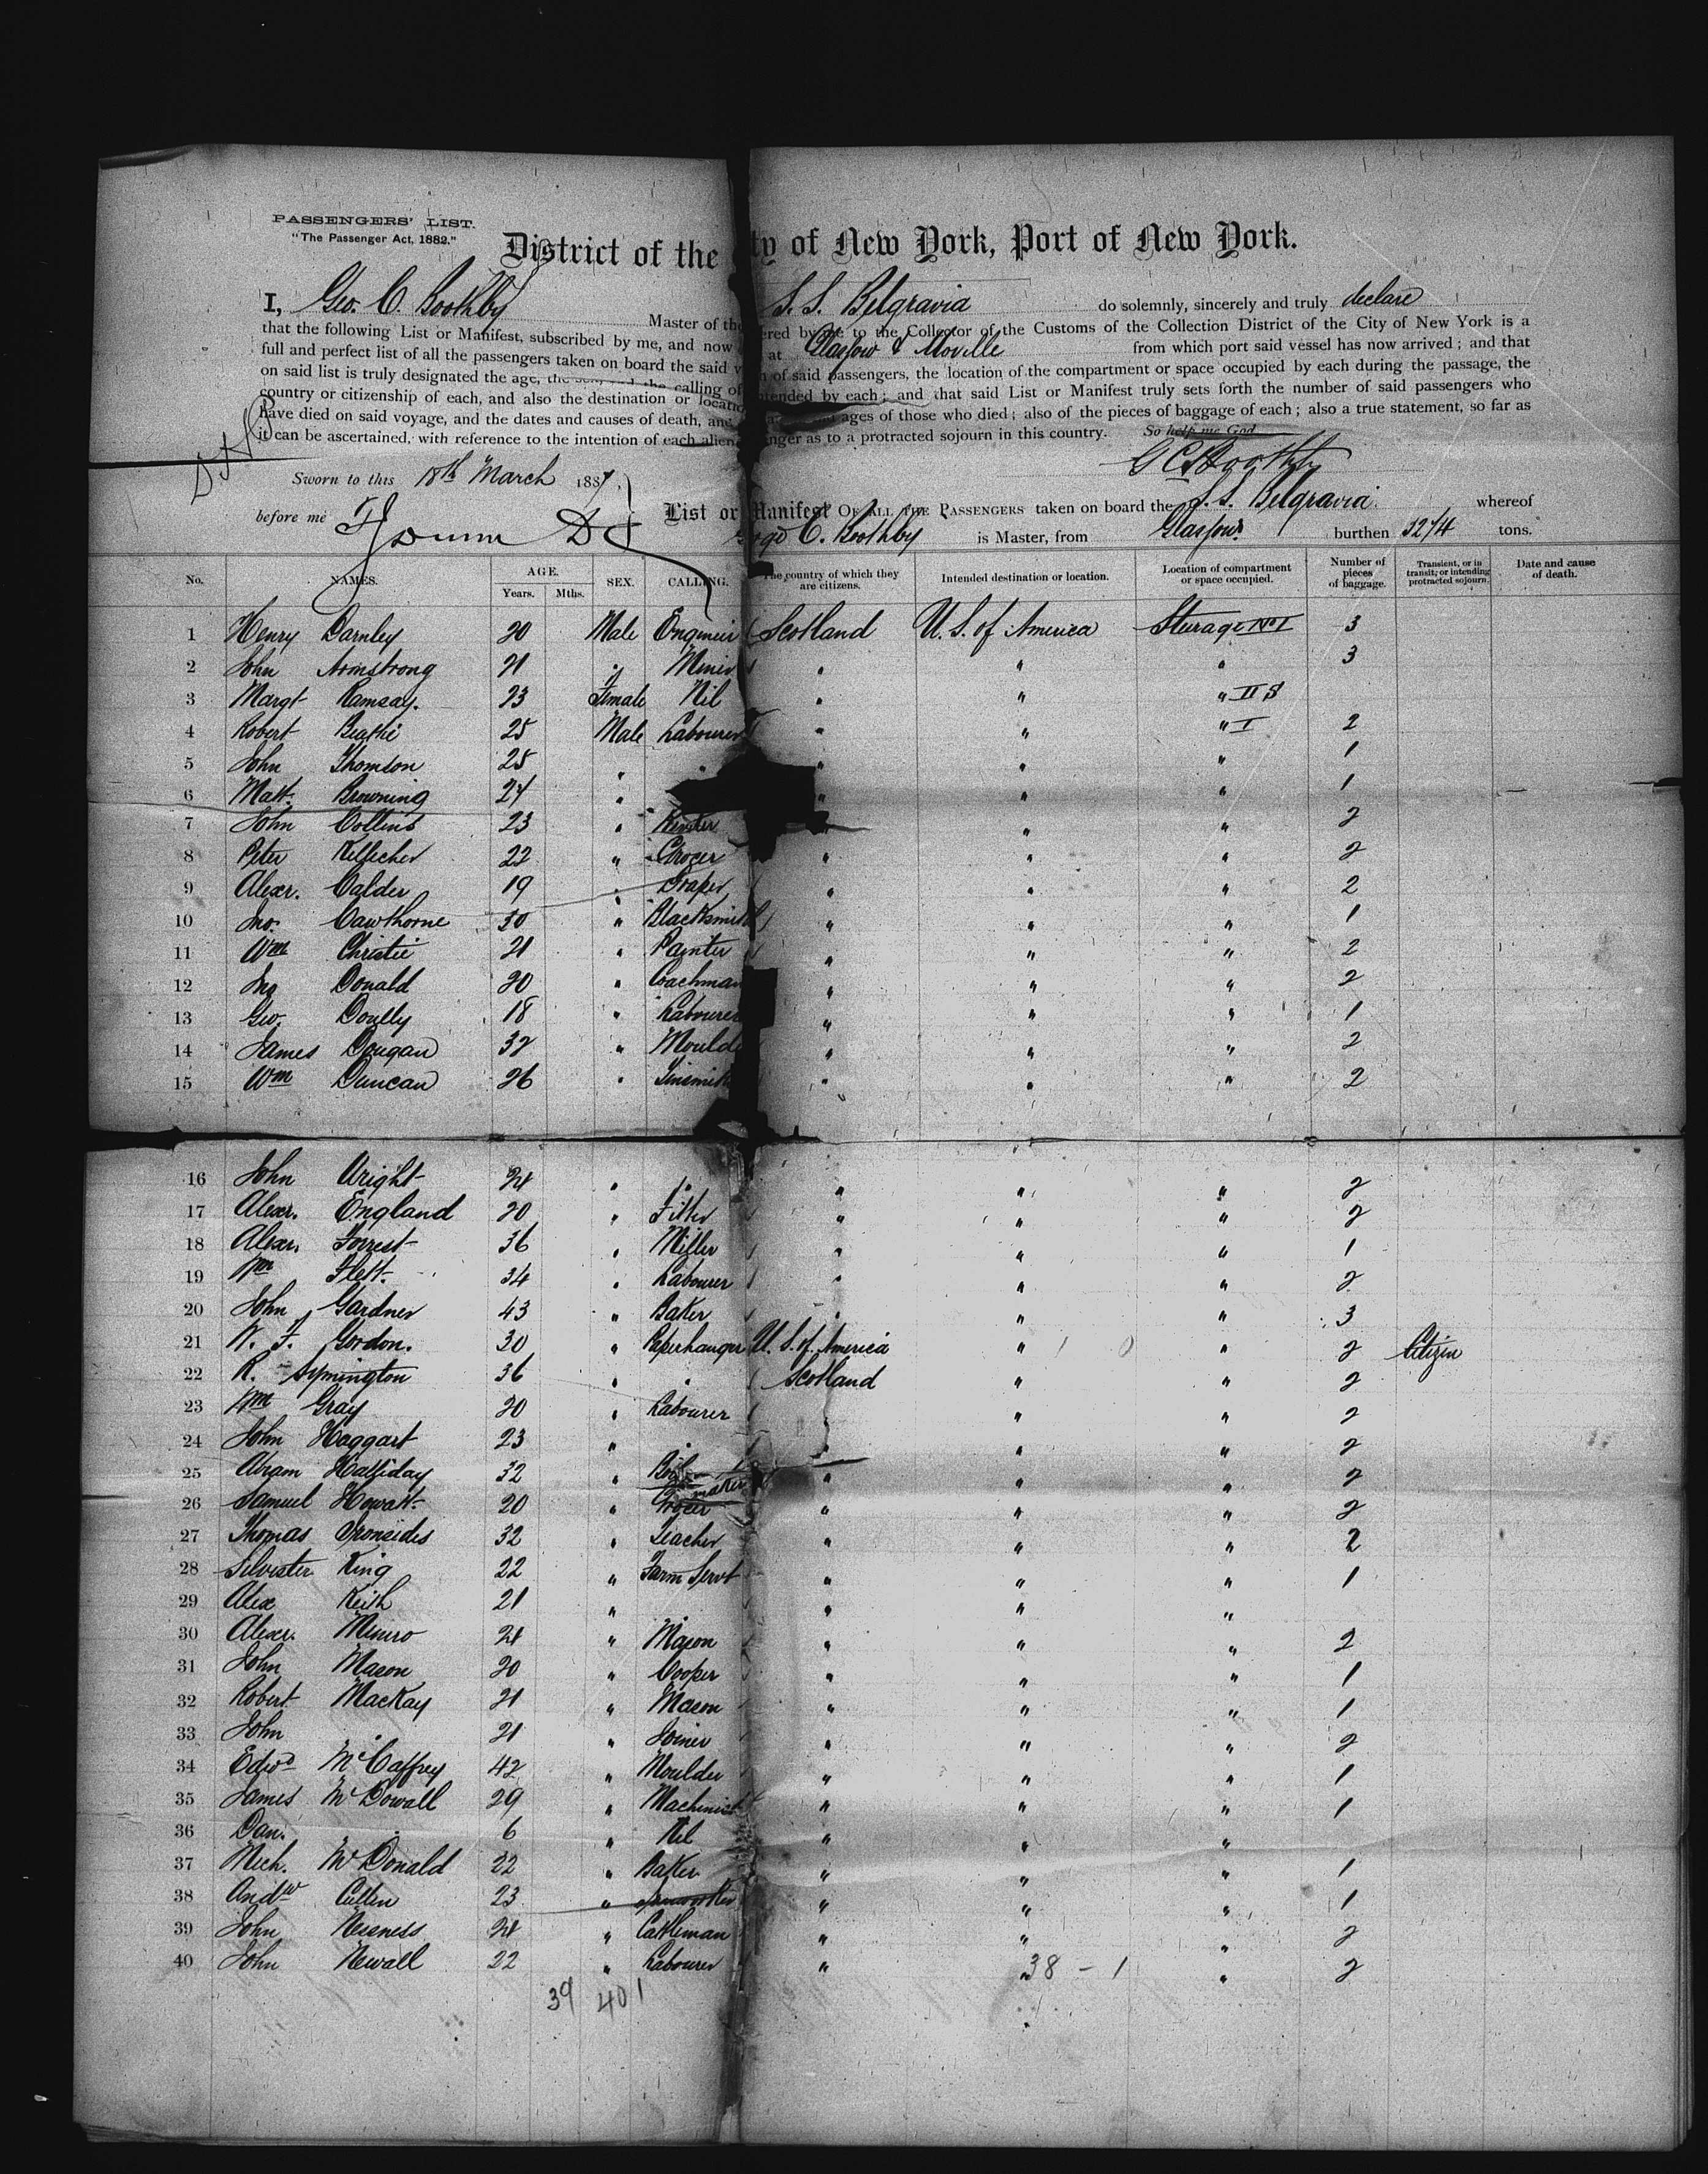 PASSENGERS' LIST.
"The Passenger Act, 1882."
District of the ty of New York, Port of New York.
I, Geo. C. Boothby Master of the S. S. Belgravia do solemnly, sincerely and truly declare
that the following List or Manifest, subscribed by me, and now ered by me to the Collector of the Customs of the Collection District of the City of New York is a
full and perfect list of all the passengers taken on board the said at Glasgow & Moville from which port said vessel has now arrived; and that
on said list is truly designated the age, the calling of of said passengers, the location of the compartment or space occupied by each during the passage, the
country or citizenship of each, and also the destination or location ntended by each; and that said List or Manifest truly sets forth the number of said passengers who
have died on said voyage, and the dates and causes of death, and ages of those who died; also of the pieces of baggage of each; also a true statement, so far as
it can be ascertained, with reference to the intention of each alien nger as to a protracted sojourn in this country. So help me God
G C Boothby
Sworn to this 18th March 1887,
before me
List or Manifest OF ALL THE PASSENGERS taken on board the S. S. Belgravia whereof
C. Boothby is Master, from Glasgow burthen 3214 tons.
No. NAMES. AGE. Years. Mths. SEX. CALLING. The country of which they are citizens. Intended destination or location. Location of compartment or space occupied. Number of pieces of baggage. Transient, or in transit, or intending protracted sojourn. Date and cause of death.
1 Henry Darnley 20 Male Engineer Scotland U. S. of America Sturage No I 3
2 John Armstrong 21 " Miner " " " 3
3 Margt Ramsay. 23 Female Nil " " " II S
4 Robert Beattie 25 Male Labourer " " " I 2
5 John Thomson 25 " " " " " 1
6 Matt. Browning 24 " " " " 1
7 John Collins 23 " " " " 2
8 Peter Kellecher 22 " Grocer " " " 2
9 Alexr. Calder 19 " Draper " " " 2
10 Jno. Cawthorne 30 " Blacksmith " " " 1
11 Wm Christie 21 " Painter " " " 2
12 Jno Donald 20 " Coachman " " " 2
13 Geo. Doully 18 " Labourer " " " 1
14 James Dougan 32 " Moulde " " " 2
15 Wm Duncan 26 " Tinsmith " " " 2
16 John Wright 24 " " " " " 2
17 Alexr. England 20 " Fitter " " " 2
18 Alexr. Forrest 36 " Miller " " " 1
19 Wm Flett. 34 " Labourer " " " 2
20 John Gardner 43 " Baker " " " 3
21 W. F. Gordon. 30 " Paperhanger U. S. of America " " 2 Citizen
22 R. Symington 36 " " Scotland " " 2
23 Wm Gray 20 " Labourer " " " 2
24 John Haggart 23 " " " " " 2
25 Abram Halliday 32 " maker " " " 2
26 Samuel Howatt 20 " Grocer " " " 2
27 Thomas Ironsides 32 " Teacher " " " 2
28 Silvester King 22 " Farm Servt " " " 1
29 Alex Keith 21 " " " " "
30 Alexr. Munro 24 " Mason " " " 2
31 John Mason 20 " Cooper " " " 1
32 Robert MacKay 21 " Mason " " " 1
33 John " 21 " Joiner " " " 2
34 Edwd McCaffrey 42 " Moulder " " " 1
35 James McDowall 29 " Machinist " " " 1
36 Dan. " 6 " Nil " " "
37 Mich. McDonald 22 " Baker " " " 1
38 Andw Cullen 23 " " " " 1
39 John Nesness 24 " Cattleman " " " 2
40 John Newall 22 " Labourer " " " 2
38 - 1
39 40 1